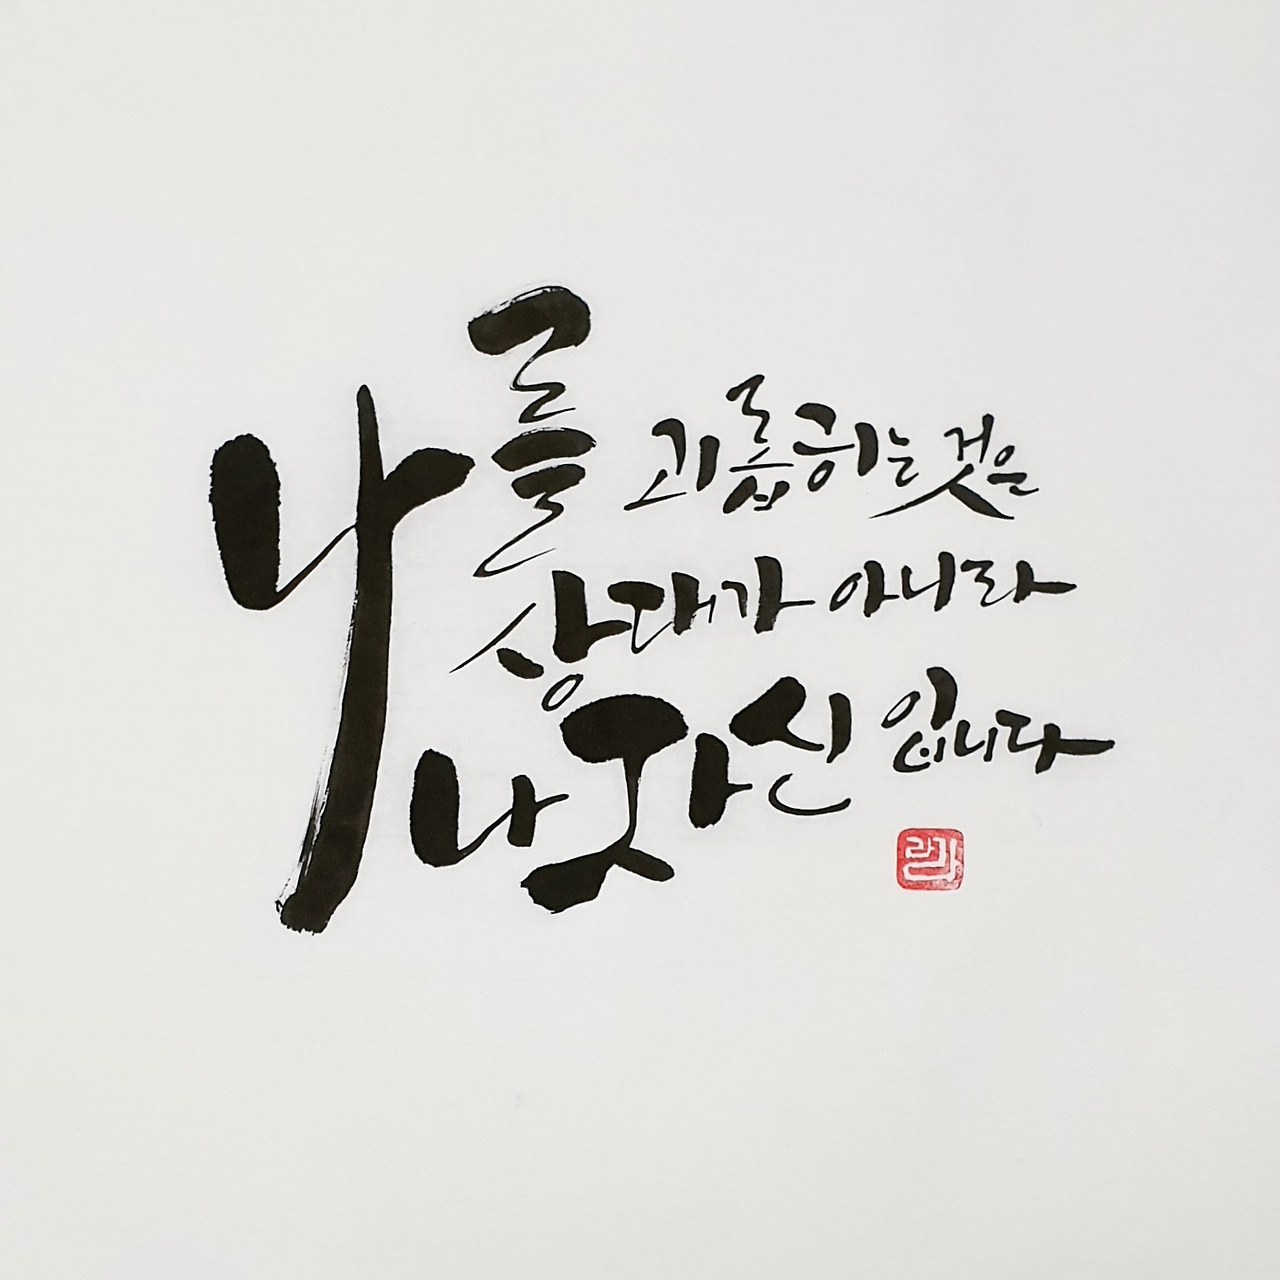 나를 괴롭히는 것은
상대가 아니라
나 자신 입니다